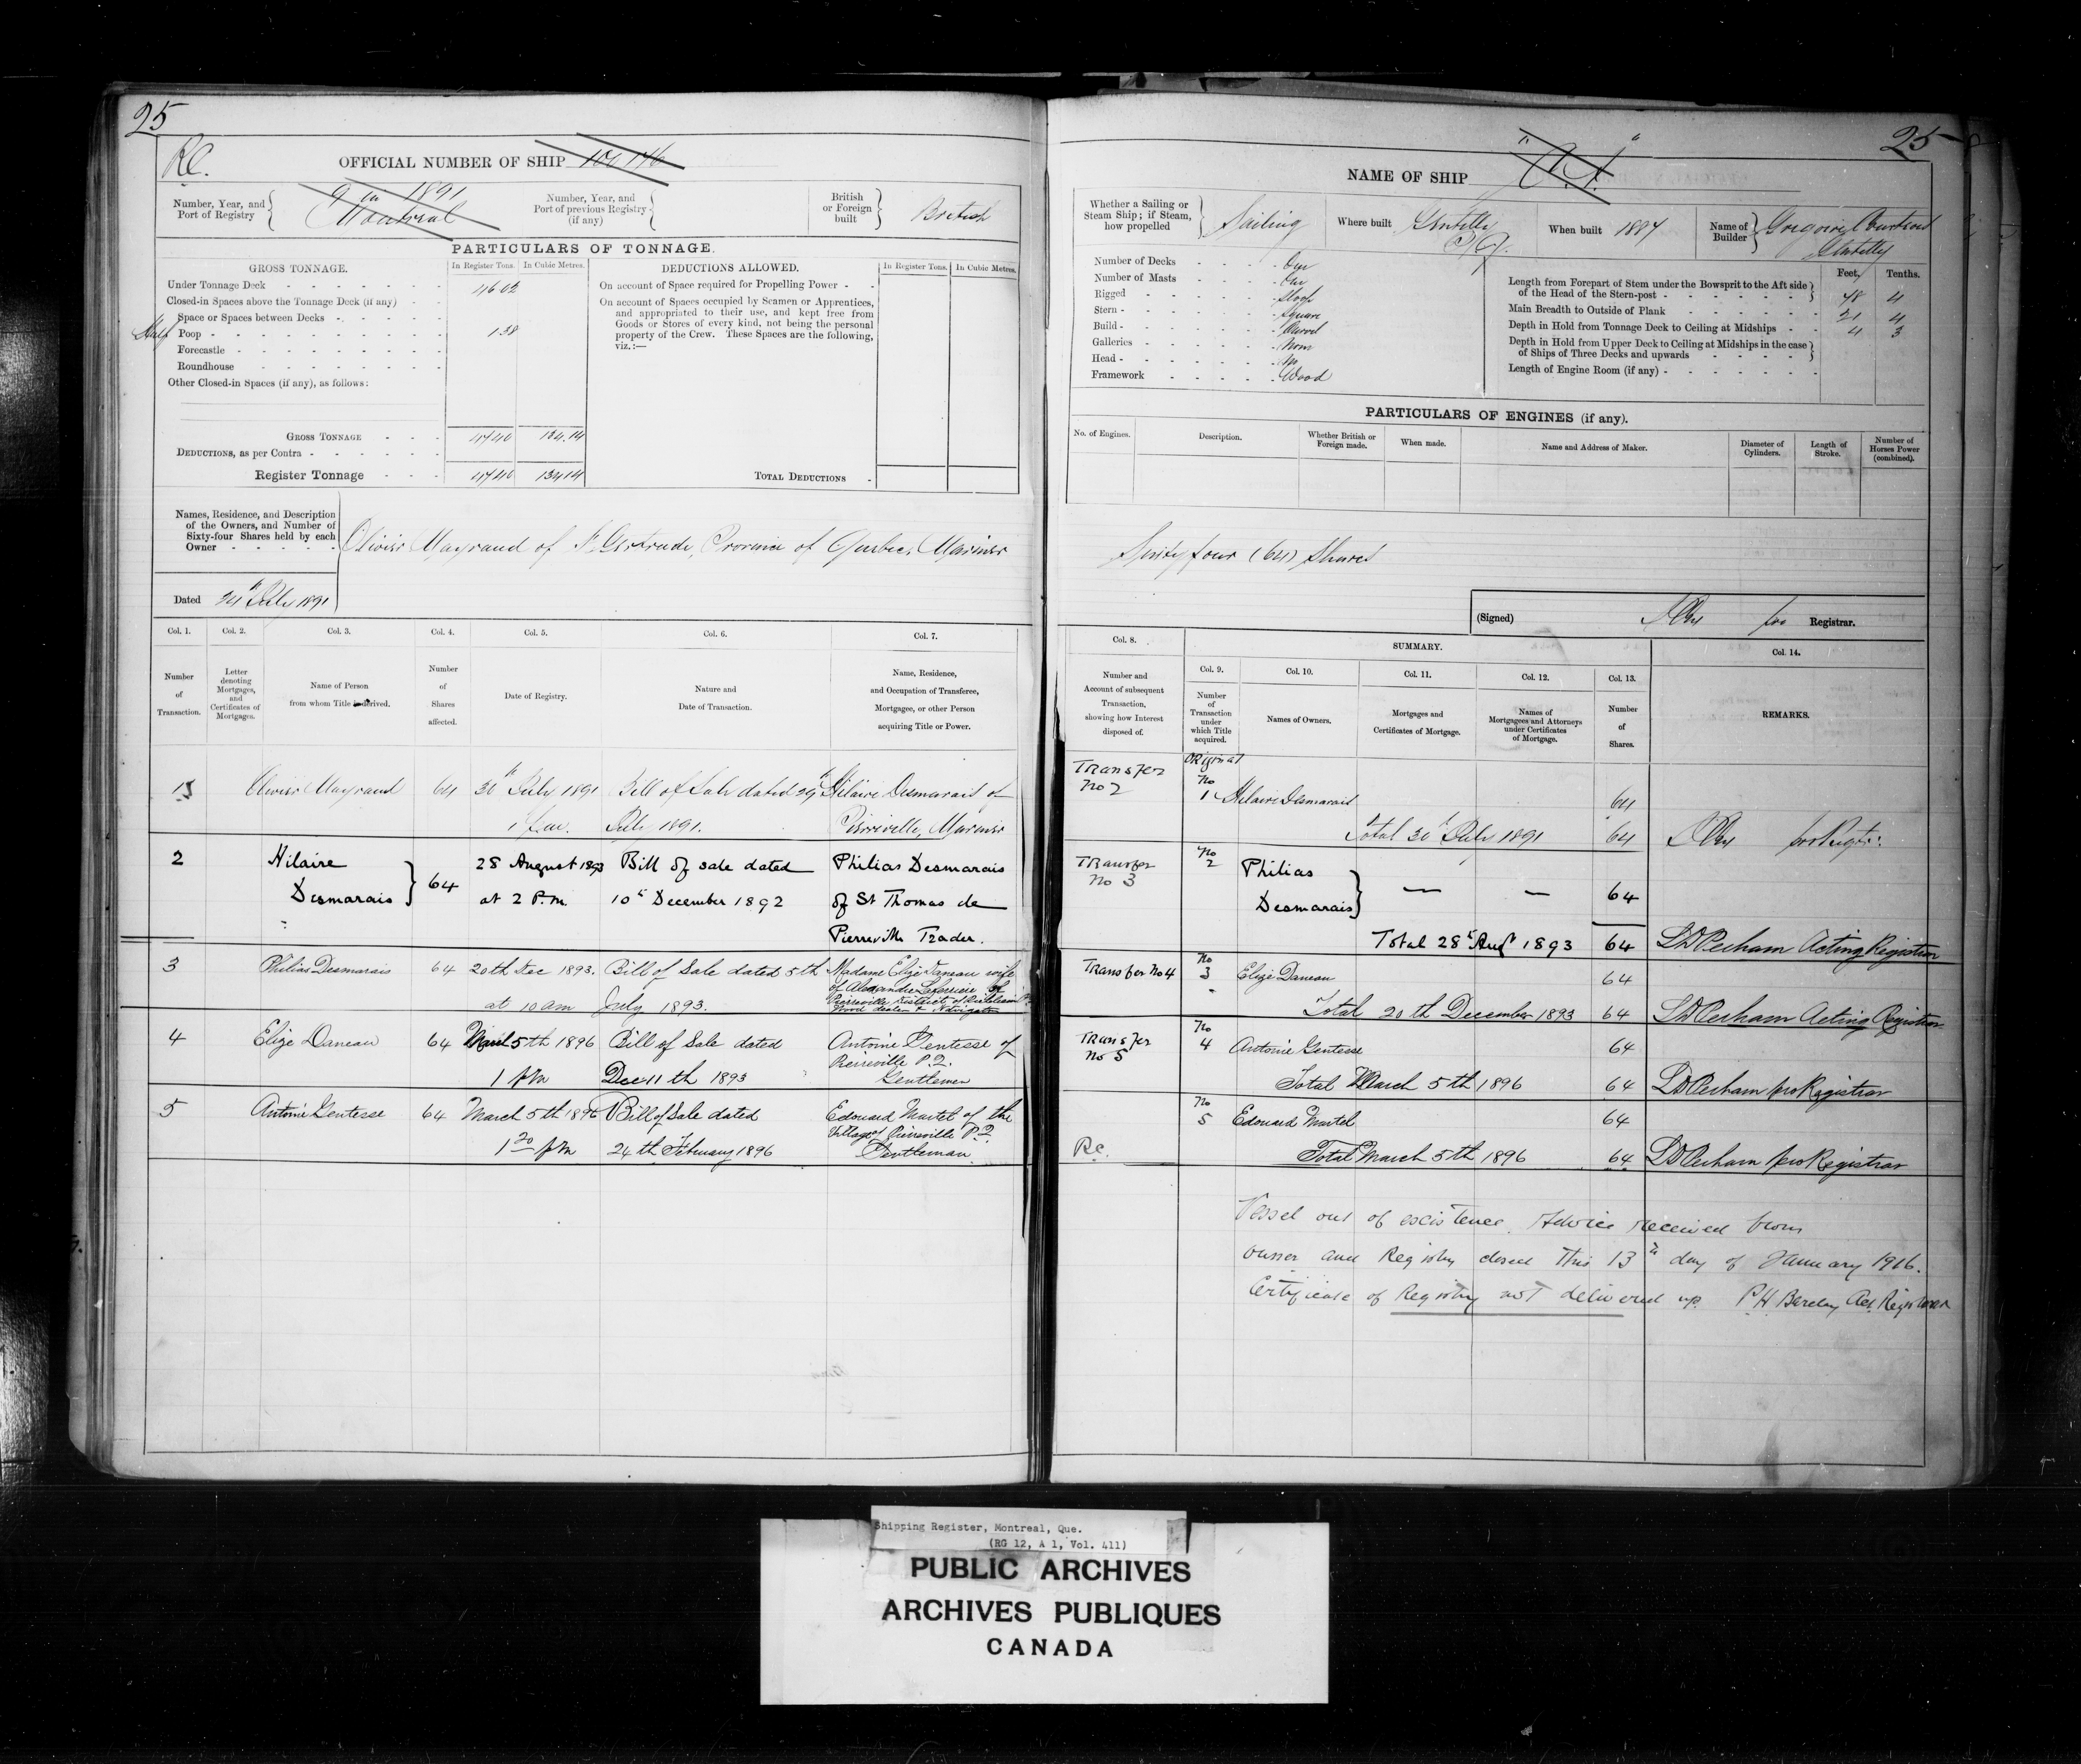 25
Rc.
OFFICIAL NUMBER OF SHIP 100 146
Number, Year, and Port of Registry
9 in 1891
Montreal
Number, Year, and Port of previous Registry (if any)
British or Foreign built
British
PARTICULARS OF TONNAGE.
GROSS TONNAGE. In Register Tons. In Cubic Metres.
Under Tonnage Deck 46 02
Closed-in Spaces above the Tonnage Deck (if any)
Space or Spaces between Decks
Half Poop 1 38
Forecastle
Roundhouse
Other Closed-in Spaces (if any), as follows:
GROSS TONNAGE 47 40 134.14
DEDUCTIONS, as per Contra
Register Tonnage 47 40 134 14
DEDUCTIONS ALLOWED. In Register Tons. In Cubic Metres.
On account of Space required for Propelling Power
On account of Spaces occupied by Seamen or Apprentices,
and appropriated to their use, and kept free from
Goods or Stores of every kind, not being the personal
property of the Crew. These Spaces are the following,
viz.:—
TOTAL DEDUCTIONS
Names, Residence, and Description
of the Owners, and Number of
Sixty-four Shares held by each
Owner
Olivier Mayrand of St Gertrude, Province of Quebec, Mariner
Dated 24th July 1891
Col. 1. Col. 2. Col. 3. Col. 4. Col. 5. Col. 6. Col. 7.
Number of Transaction.
Letter denoting Mortgages, and Certificates of Mortgages.
Name of Person from whom Title is derived.
Number of Shares affected.
Date of Registry.
Nature and Date of Transaction.
Name, Residence, and Occupation of Transferee, Mortgagee, or other Person acquiring Title or Power.
1 Olivier Mayrand 64 30th July 1891 Bill of Sale dated 29th Hilaire Desmarais of
1 p.m. July 1891. Pierreville, Mariner
2 Hilaire 28 August 1893 Bill of sale dated Philias Desmarais
Desmarais 64 at 2 P.m. 10th December 1892 of St Thomas de
Pierreville Trader.
3 Philias Desmarais 64 20th Dec 1893. Bill of Sale dated 5th Madame Elize Daneau wife
at 10 am July 1893. of Alexandre Laferriere of
Pierreville District of Richelieu
Wood dealer & Navigator
4 Elize Daneau 64 March 5th 1896 Bill of Sale dated Antoine Gentesse of
Pierreville P.Q.
1 pm Dec 11 th 1893 Gentlemen
5 Antoine Gentesse 64 March 5th 1896 Bill of Sale dated Edouard Martel of the
Village of Pierreville P.Q.
1 20 pm 24 th February 1896 Gentleman
25
NAME OF SHIP
Whether a Sailing or Steam Ship; if Steam, how propelled
Sailing
Where built Gentilly P.Q.
When built 1887
Name of Builder
Gentilly
Number of Decks One
Number of Masts One
Rigged Sloop
Stern Square
Build Carvel
Galleries None
Head No
Framework Wood
Feet, Tenths.
Length from Forepart of Stem under the Bowsprit to the Aft side of the Head of the Stern-post 78 4
Main Breadth to Outside of Plank 21 4
Depth in Hold from Tonnage Deck to Ceiling at Midships 4 3
Depth in Hold from Upper Deck to Ceiling at Midships in the case of Ships of Three Decks and upwards
Length of Engine Room (if any)
PARTICULARS OF ENGINES (if any).
No. of Engines. Description. Whether British or Foreign made. When made. Name and Address of Maker. Diameter of Cylinders. Length of Stroke. Number of Horses Power (combined).
Sixty four (64) Shares
(Signed) for Registrar.
Col. 8. SUMMARY. Col. 14.
Col. 9. Col. 10. Col. 11. Col. 12. Col. 13.
Number and Account of subsequent Transaction, showing how Interest disposed of.
Number of Transaction under which Title acquired.
Names of Owners.
Mortgages and Certificates of Mortgage.
Names of Mortgagees and Attorneys under Certificates of Mortgage.
Number of Shares.
REMARKS.
Transfer No 2 Original No 1 Hilaire Desmarais 64
Total 30th July 1891 64
Transfer No 3 No 2 Philias Desmarais — — 64
Total 28th Augt 1893 64 Perham Acting Registrar
Transfer No 4 No 3 Elize Daneau 64
Total 20 th December 1893 64 Perham Acting Registrar
Transfer No 5 No 4 Antoine Gentesse 64
Total March 5 th 1896 64 Perham pro Registrar
No 5 Edouard Martel 64
R.c. Total March 5 th 1896 64 Perham pro Registrar
Vessel out of existence. Advice received from
owner and Registry closed this 13th day of January 1916.
Certificate of Registry not delivered up. P.H. Barclay Act Registrar
Shipping Register, Montreal, Que.
(RG 12, A 1, Vol. 411)
PUBLIC ARCHIVES
ARCHIVES PUBLIQUES
CANADA